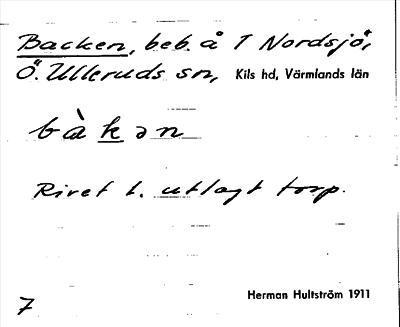 Backen, beb. å T Nordsjö,
Ö. Ulleruds sn, Kils hd, Värmlands län
bàkən
Rivet l. utlagt torp.
Herman Hultström 1911
7